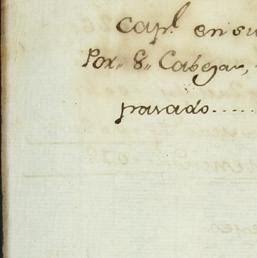 capl en su
Por 8 Cabezas,
parado.....